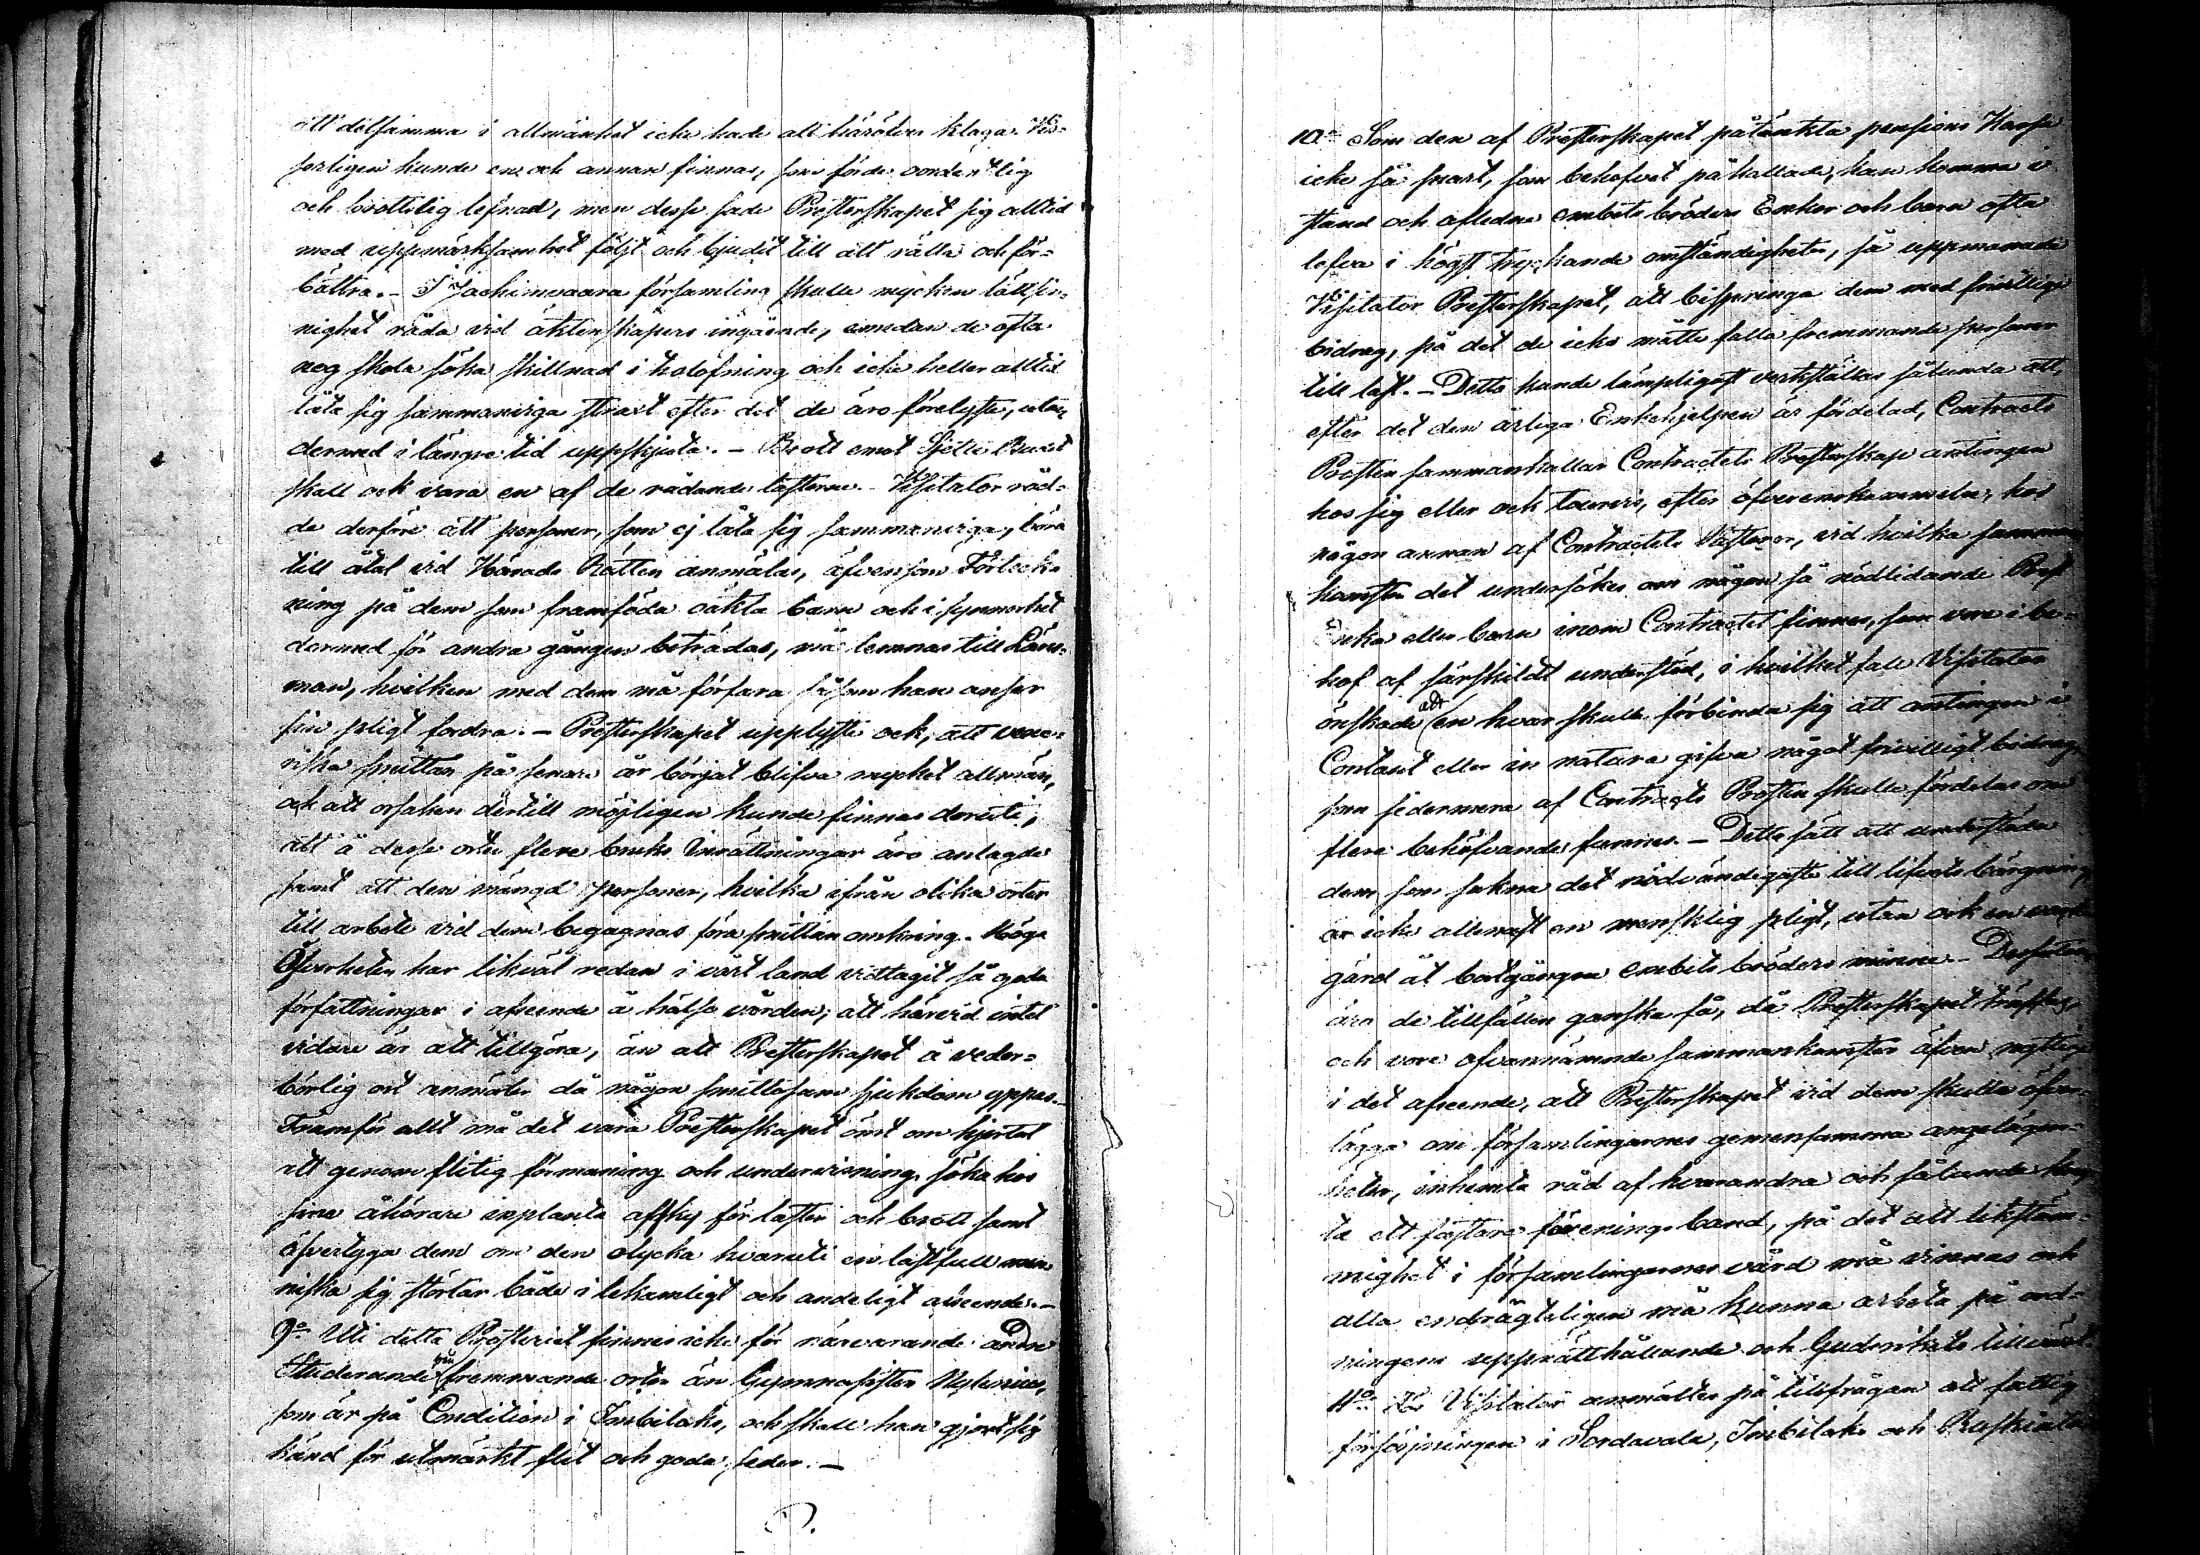 att detsamma i allmänhet icke hade att häröfver klaga. Vis-
serligen kunde en och annan finnas, som förde oordentlig
och brottslig lefnad, men desse sade Presterskapet sig alltid
med uppmärksamhet följt och bjudit till att rätta och för-
bättra. – I Jaakimvaara församling skulle mycken lättsin-
nighet råda vid äktenskapers ingående, emedan de ofta
nog skola söka skillnad i trolofning och icke heller alltid
låta sig sammanviga strax efter det de äro förelyste, utan
dermed i längre tid uppskjuta. – Brott emot Sjette Budet
skall ock vara en af de rådande lasterne. – Visitator råd-
de derföre att personer, som ej låta sig sammanviga, böra
till åtal vid Härads Rätten anmälas, äfvensom Förteck-
ning på dem som framföda oäkta barn och i synnerhet
dermed för andra gången beträdas, må lemnas till Läns-
man, hvilken med dem må förfara såsom han anser
sin pligt fordra. – Presterskapet upplyste ock, att vene-
riska smittan på senare år börjat blifva mycket allmän,
och att orsaken dertill möjligen kunde finnas deruti,
att å desse orter flere bruks Inrättningar äro anlagde
samt att den mängd personer, hvilka ifrån olika orter
till arbete vid dem begagnas föra smittan omkring. Höga
Öfverheten har likväl redan i vårt land vidtagit så goda
författningar i afseende å hälso vården, att härvid intet
vidare är att tillgöra, än att Presterskapet å veder-
börlig ort anmäler då någon smittosam sjukdom yppas. –
Framför allt må det vara Presterskapet ömt om hjertat
att genom flitig förmaning och undervisning söka hos
sine åhörare inplanta afsky för laster och brott samt
öfvertyga dem om den olycka hvaruti en lastfull men-
niska sig störtar både i lekamligt och andeligt afseende. –
9o Uti detta Prosteriet finnes icke för närvarande andre
Studerande från fremmande orter än Gymnasisten Nylenius,
som är på Condition i Imbilaks, och skall han gjort sig
känd för utmärkt flit och goda seder. –
10o Som den af Presterskapet påtänkta pensions Kassa
icke så snart, som behofvet påkallade, kan komma i
stånd och aflednes embets bröders Enkor och barn ofta
lefva i högst tryckande omständigheter, så uppmanade
Visitator Presterskapet, att bispringa dem med frivilliga
bidrag, på det de icke måtte falla fremmande personer
till last. – Detta kunde lämpligast verkställas sålunda att,
efter det den årliga Enkehjelpen är fördelad, Contracts
Prosten sammankallar Contractets Presterskap antingen
hos sig eller ock tourvis, efter öfverenskommelse, hos
någon annan af Contractets Pastorer, vid hvilka samman
komster det undersökes om någon så nödlidande Prest
Enka eller barn inom Contractet finnes, som vore i be-
hof af särskildt understöd, i hvilket fall Visitator
önskade att en hvar skulle förbinda sig att antingen i
Contant eller in natura gifva något frivilligt bidrag,
som sedermera af Contracts Prosten skulle fördelas om
flere behöfvande funnes. – Detta sätt att understöda
dem som sakna det nödvändigaste till lifvets bärgning
är icke allenast en mensklig pligt, utan ock en
gärd åt bortgångne embets bröders minne. – Dessutom
äro de tillfällen ganska få, då Presterskapet träffas,
och vore ofvannämnde sammankomster äfven nyttig
i det afseende, att Presterskapet vid dem skulle öfver-
lägga om församlingarnes gemensamma angelägen-
heter, inhemta råd af hvarandra och sålunda
ta ett fastare förenings band, på det att likstäm-
mighet i församlingarnes vård må vinnas och
alla endrägteligen må kunna arbeta på ord-
ningens upprätthållande och Gudsrikets tillväxt.
11o Visitator anmältes på tillfrågan att fattig
försörjningen i Sordavala, Imbilaks och Ruskiala